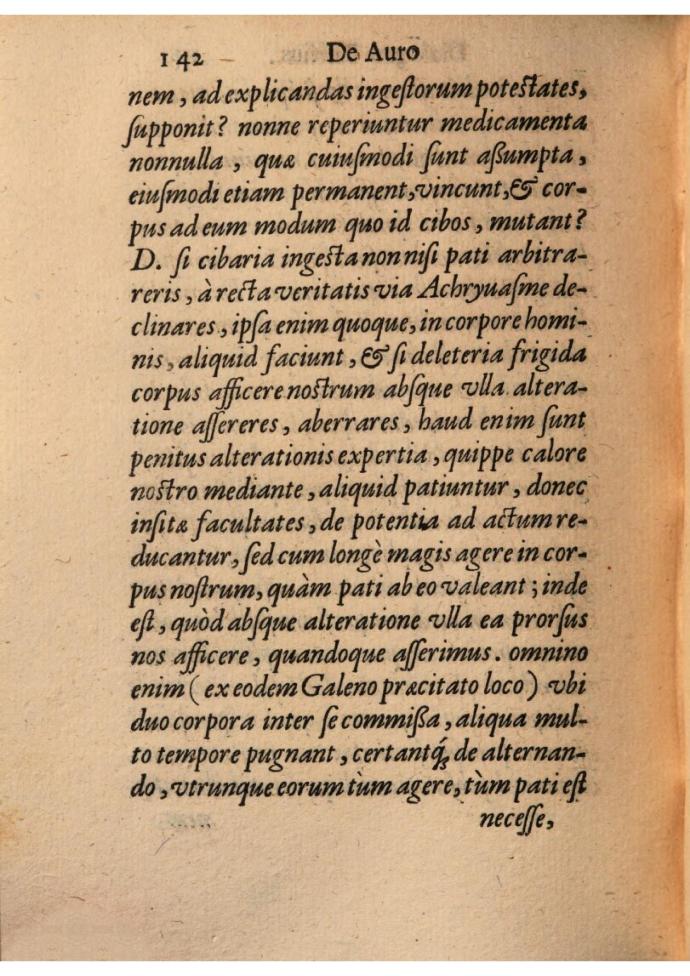 142 De Auro
nem, ad explicandas ingeſtorum poteſtates,
ſupponit? nonne reperiuntur medicamenta
nonnulla, quæ cuiuſmodi ſunt aßumpta,
eiuſmodi etiam permanent, vincunt, & cor-
pus ad eum modum quo id cibos, mutant?
D. ſi cibaria ingeſta non niſi pati arbitra-
reris, à recta veritatis via Achryuaſme de-
clinares, ipſa enim quoque, in corpore homi-
nis, aliquid faciunt, & ſi deleteria frigida
corpus afficere noſtrum abſque vlla altera-
tione aſſereres, aberrares, haud enim ſunt
penitus alterationis expertia, quippe calore
noſtro mediante, aliquid patiuntur, donec
inſitæ facultates, de potentia ad actum re-
ducantur, ſed cum longè magis agere in cor-
pus noſtrum, quàm pati ab eo valeant; inde
eſt, quòd abſque alteratione vlla ea prorſus
nos afficere, quandoque aſſerimus. omnino
enim (ex eodem Galeno præcitato loco) vbi
duo corpora inter ſe commißa, aliqua mul-
to tempore pugnant, certantq́; de alternan-
do, vtrunque eorum tùm agere, tùm pati eſt
neceſſe,